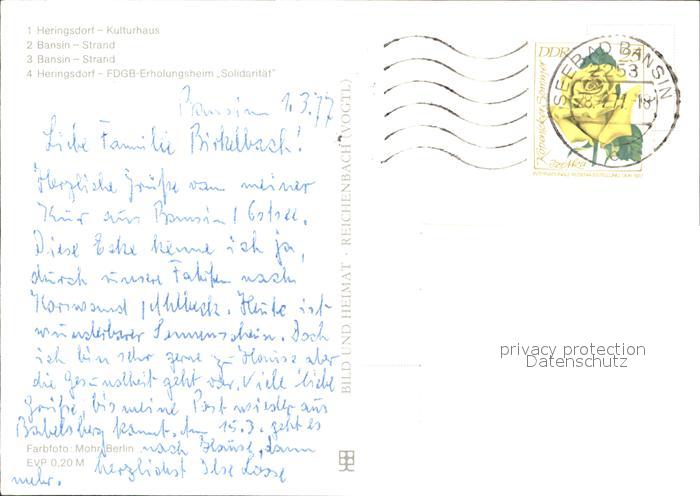 1 Heringsdorf – Kulturhaus
2 Bansin – Strand
3 Bansin – Strand
4 Heringsdorf – FDGB-Erholungsheim „Solidarität"
Bansin 1.3.77
Liebe Familie Birkelbach!
Herzliche Grüße von meiner
Kur aus Bansin / Ostsee.
Diese Ecke kenne ich ja,
durch unsere Fahrten nach
Korswand / Ahlbeck. Heute ist
wunderbarer Sonnenschein. Doch
ich bin sehr gerne zu Hause aber
die Gesundheit geht vor. Viele liebe
Grüße, bis meine Post wieder aus
Babelsberg kommt. Am 15.3. geht es
nach Hause, dann
mehr. herzlichst Ilse
Farbfoto: Mohr, Berlin
EVP 0,20 M
BILD UND HEIMAT · REICHENBACH (VOGTL)
DDR 25
SEEBAD BANSIN
2253
INTERNATIONALE ROSENAUSSTELLUNG DDR 1972
privacy protection
Datenschutz